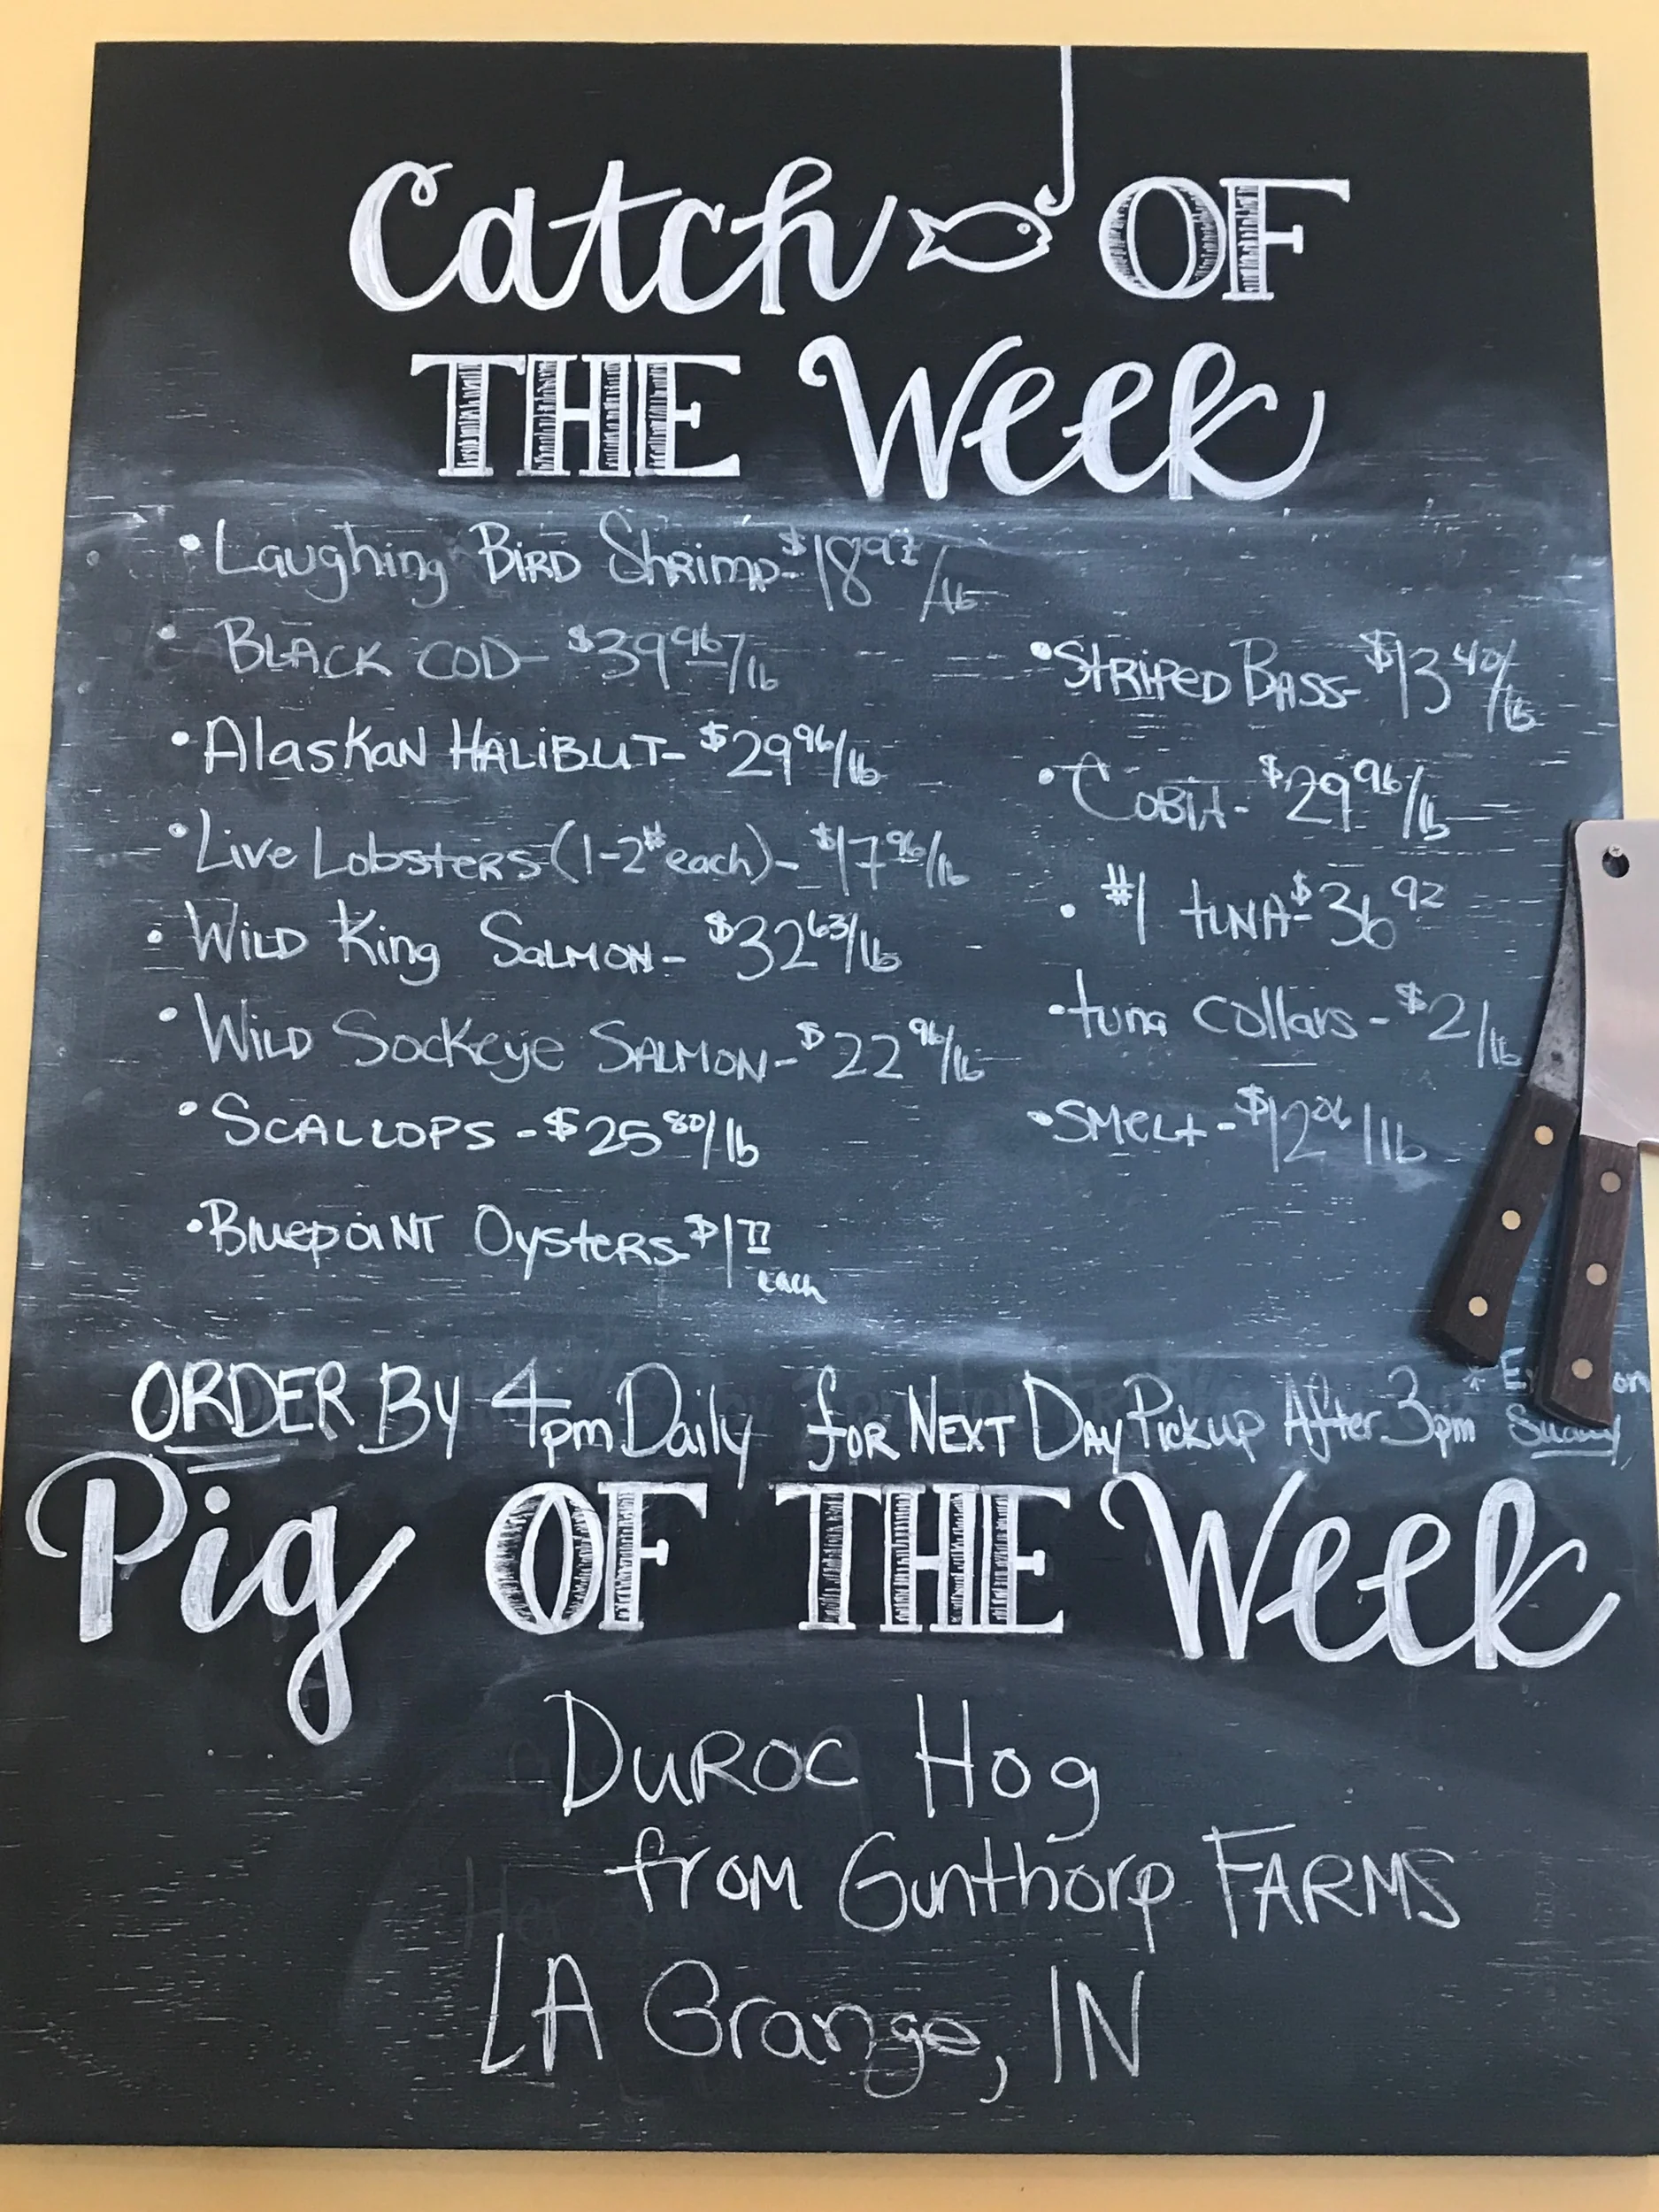 Catch OF
THE Week
• Laughing BIRD Shrimp - $18 97/lb
• BLACK COD - $39 96/lb
• Alaskan HALIBUT - $29 96/lb
• Live Lobsters (1-2# each) - $17 96/lb
• WILD King SALMON - $32 63/lb
• WILD Sockeye SALMON - $22 96/lb
• SCALLOPS - $25 80/lb
• Bluepoint Oysters - $1 77
each
• STRIPED BASS - $13 40/lb
• COBIA - $29 96/lb
• #1 tuna - $36 92
• tuna collars - $2/lb
• SMELT - $12 06/lb
ORDER By 4pm Daily for NEXT DAY Pickup After 3pm *
Pig OF THE Week
DUROC Hog
from Gunthorp FARMS
LA Grange, IN